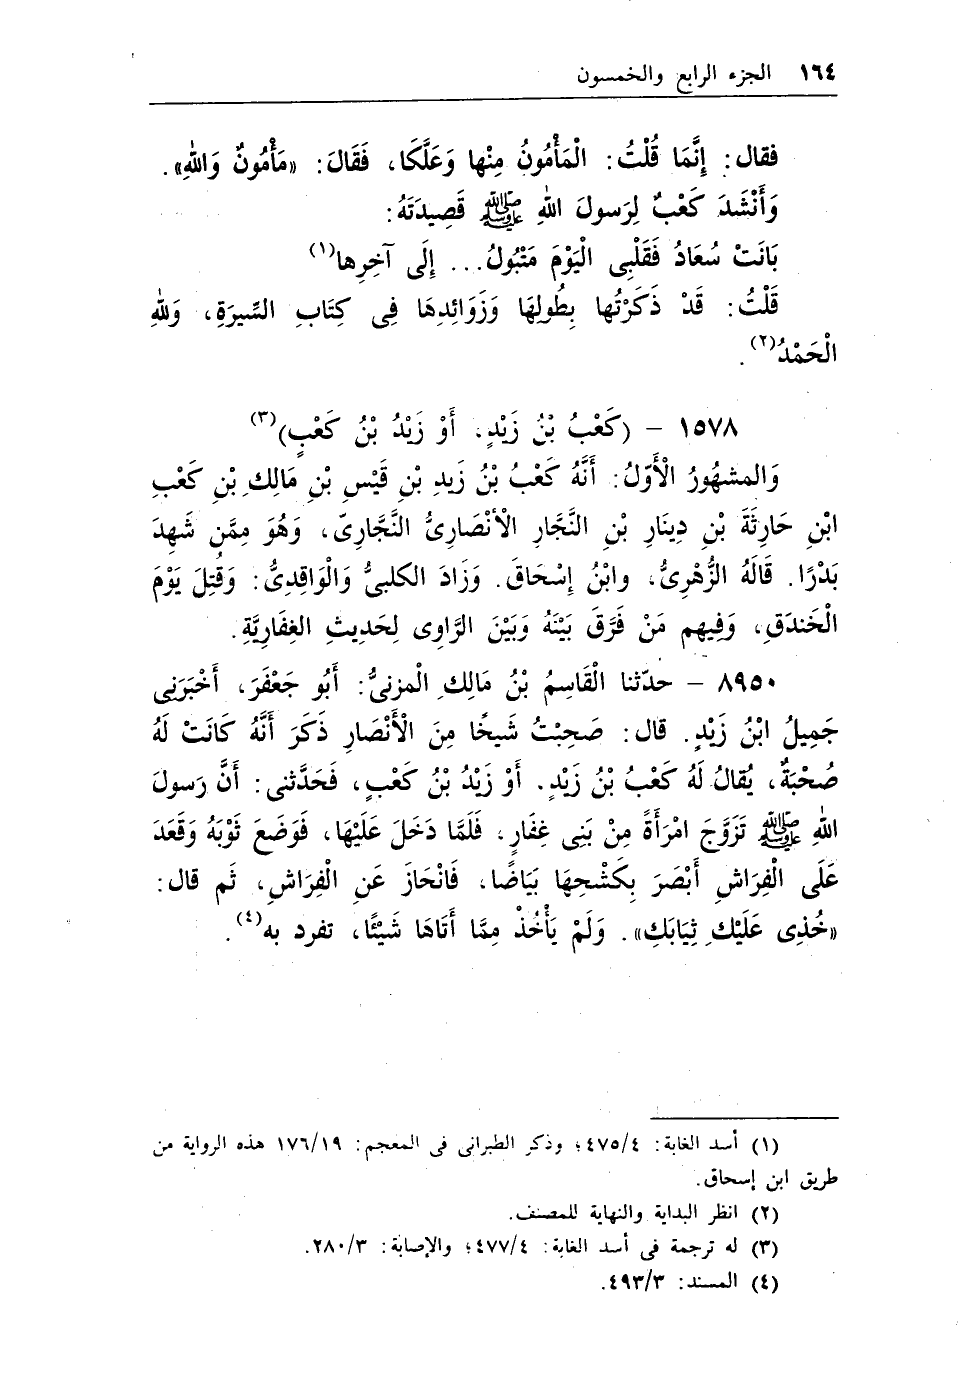 ١٦٤ الجزء الرابع والخمسون
فقال: إِنَّمَا قُلْتُ: الْمَأْمُونُ مِنْها وَعَلَّكَا، فَقَالَ: «مَأْمُونٌ وَاللهِ».
وَأَنْشَدَ كَعْبٌ لِرَسولَ اللهِ ﷺ قَصِيدَتَهُ:
بَانَتْ سُعَادُ فَقَلْبِى الْيَوْمَ مَتْبُولُ... إِلَى آخِرِها(١)
قُلْتُ: قَدْ ذَكَرْتُها بِطُولِهَا وَزَوَائِدِهَا فِى كِتَابِ السِّيرَةِ، وَللهِ
الْحَمْدُ(٢).
١٥٧٨ - (كَعْبُ بْنُ زَيْدٍ، أَوْ زَيْدُ بْنُ كَعْبٍ)(٣)
وَالمشهُورُ الْأَوّلُ: أَنَّهُ كَعْبُ بْنُ زَيدِ بْنِ قَيْسِ بْنِ مَالِكِ بْنِ كَعْبِ
ابْنِ حَارِثَةَ بْنِ دِينَارِ بْنِ النَّجَّارِ الْأَنْصَارِىُّ النَّجَّارِىّ، وَهُوَ مِمَّن شَهِدَ
بَدْرًا. قَالَهُ الزُّهْرِىُّ، وابْنُ إِسْحَاقَ. وَزَادَ الكلبىُّ وَالْوَاقِدِىُّ: وَقُتِلَ يَوْمَ
الْخَندَقِ، وَفِيهِم مَنْ فَرَّقَ بَيْنَهُ وَبَيْنَ الرَّاوِى لِحَدِيثِ الغِفَارِيَّةِ.
٨٩٥٠ - حدّثنا الْقَاسِمُ بْنُ مَالِكِ الْمزنىُّ: أَبُو جَعْفَرَ، أَخْبَرَنِى
جَمِيلُ ابْنُ زَيْدٍ. قال: صَحِبْتُ شَيخًا مِنَ الْأَنْصَارِ ذَكَرَ أَنَّهُ كَانَتْ لَهُ
صُحْبَةٌ، يُقالُ لَهُ كَعْبُ بْنُ زَيْدٍ. أَوْ زَيْدُ بْنُ كَعْبٍ، فَحَدَّثنى: أَنَّ رَسولَ
اللهِ ﷺ تَزَوَّجَ امْرَأَةً مِنْ بَنِى غِفَارٍ، فَلَمَّا دَخَلَ عَلَيْهَا، فَوَضَعَ ثَوْبَهُ وَقَعَدَ
عَلَى الْفِرَاشِ أَبْصَرَ بِكَشْحِهَا بَيَاضًا، فَانْحَازَ عَنِ الْفِرَاشِ، ثَم قال:
«خُذِى عَلَيْكِ ثِيَابَكِ». وَلَمْ يَأْخُذْ مِمَّا أَتَاهَا شَيْئًا، تفرد به(٤).
(١) أسد الغابة: ٤٧٥/٤؛ وذكر الطبرانى فى المعجم: ١٧٦/١٩ هذه الرواية من
طريق ابن إسحاق.
(٢) انظر البداية والنهاية للمصنف.
(٣) له ترجمة فى أسد الغابة: ٤٧٧/٤؛ والإصابة: ٢٨٠/٣.
(٤) المسند: ٤٩٣/٣.